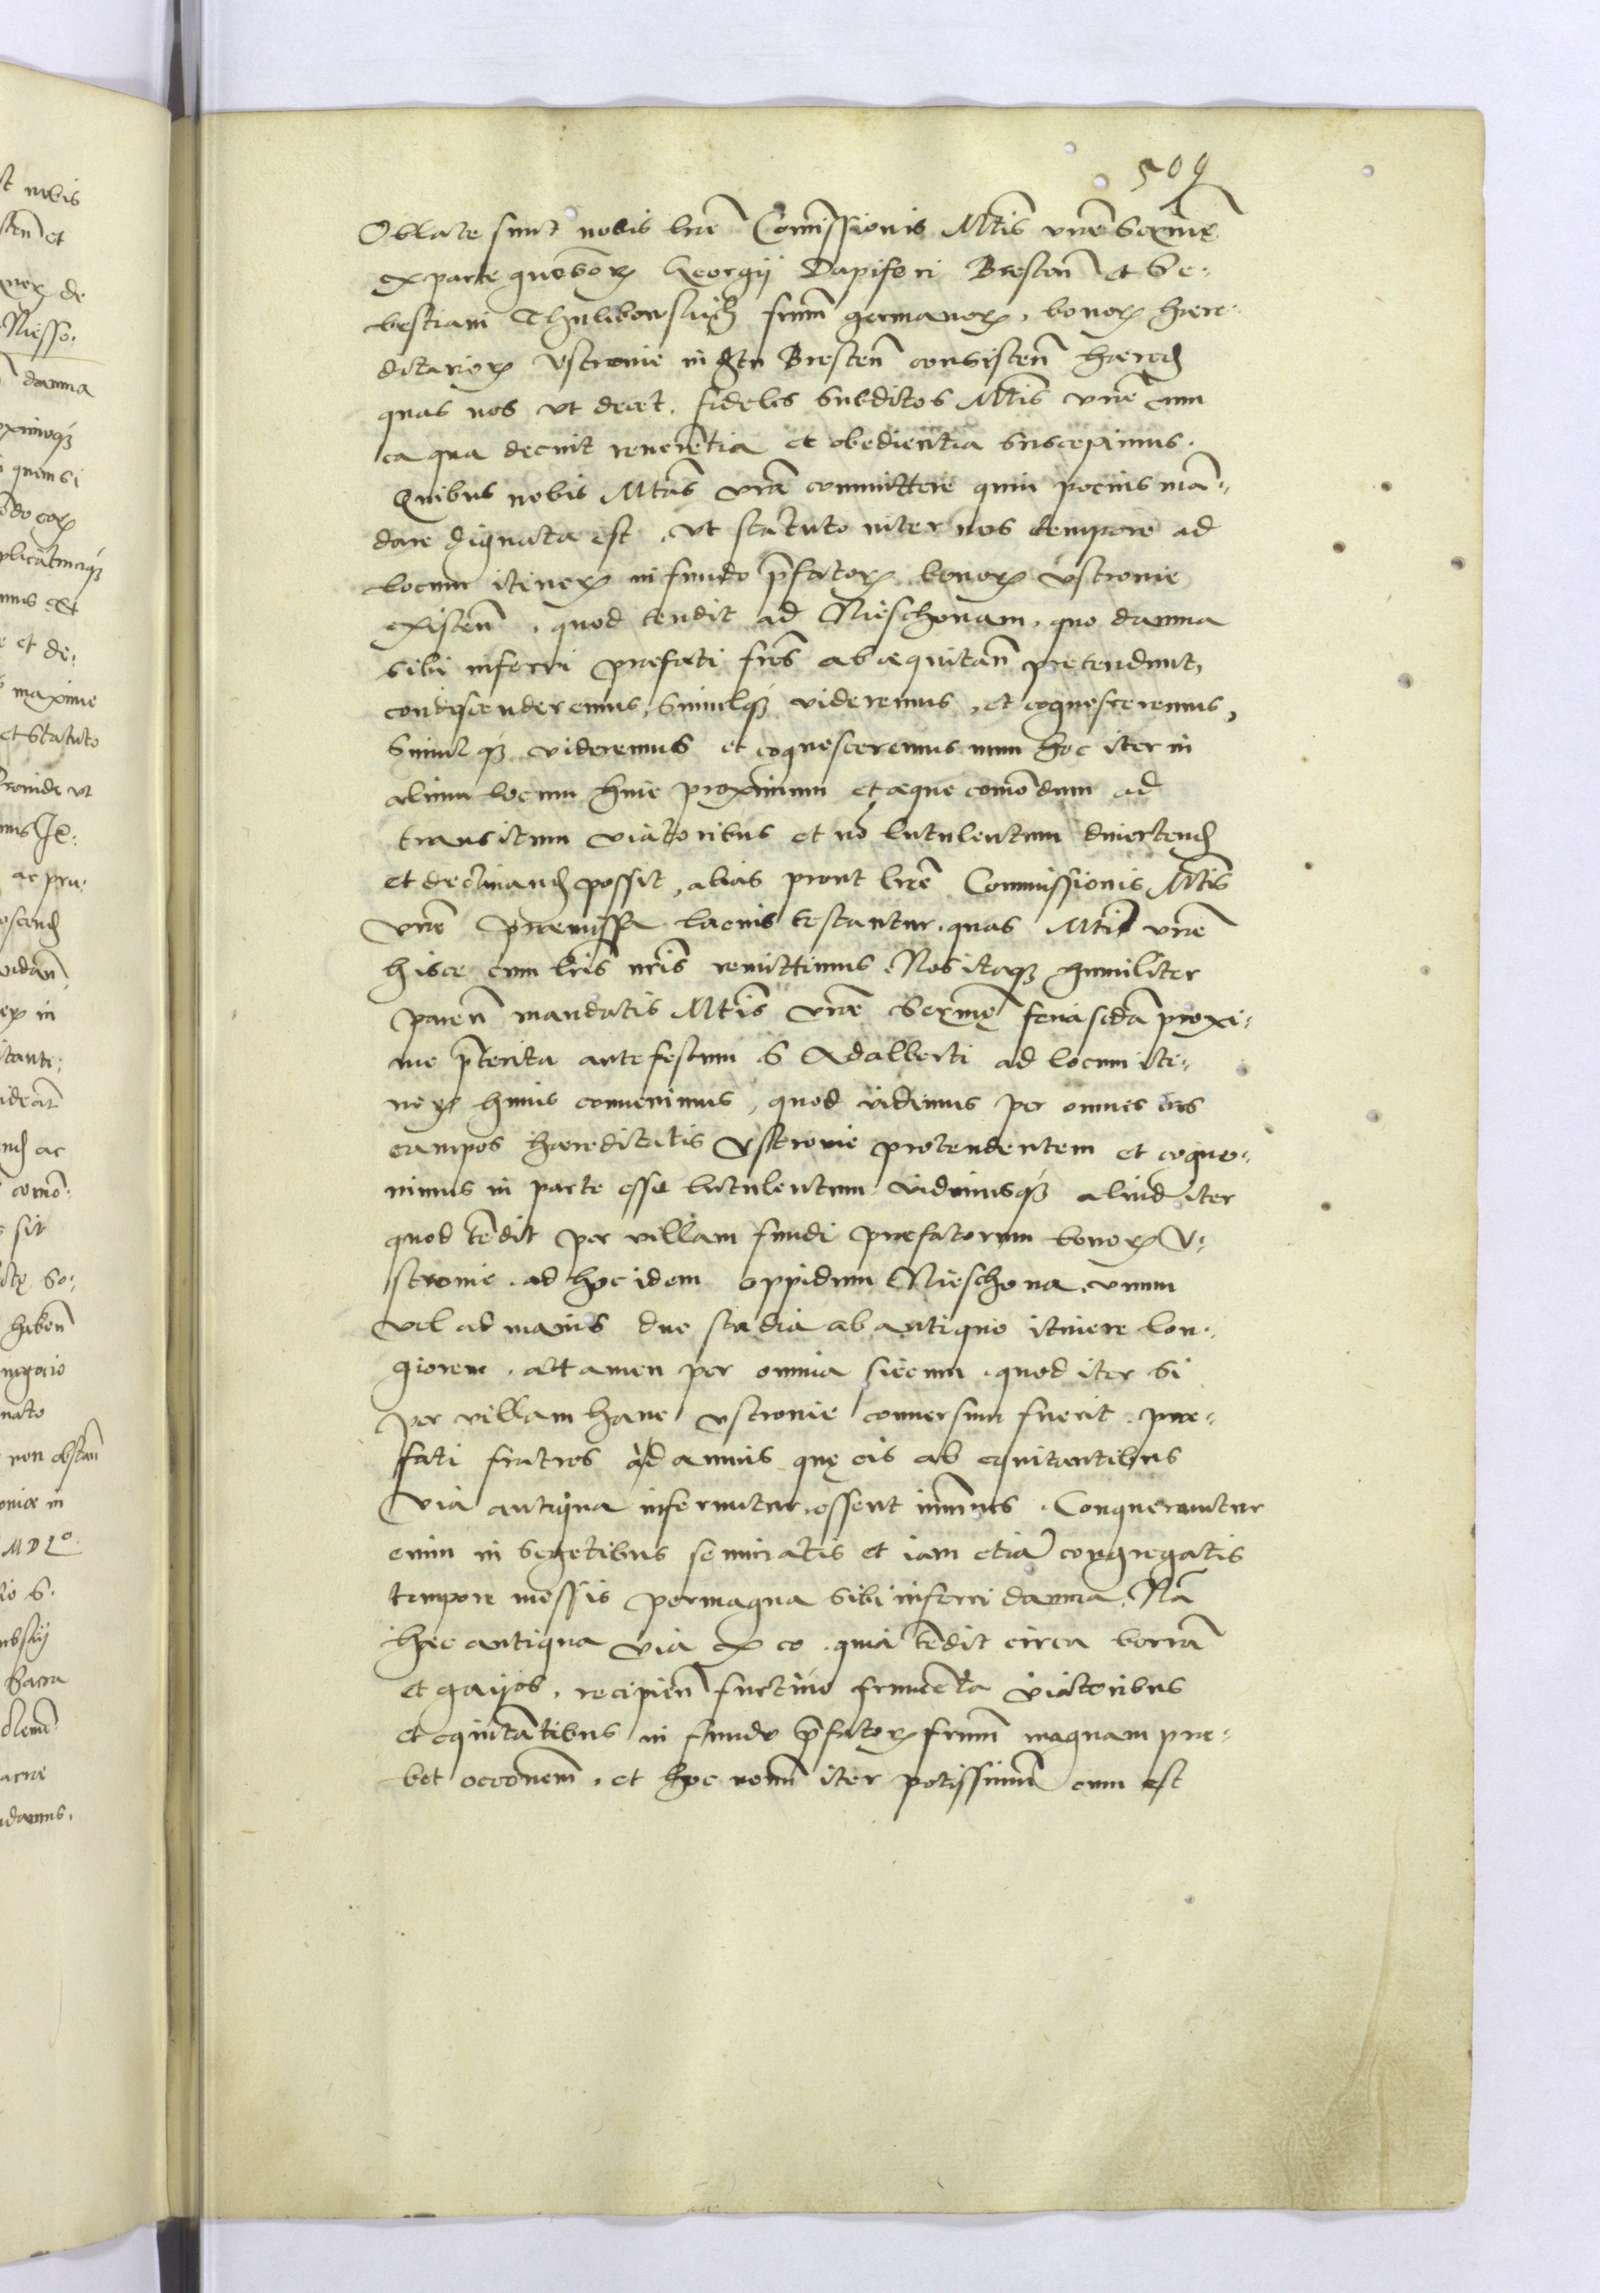 509
Oblate sunt nobis lre͂ Comissionis Mtis vre͂ Serme͂
ex parte generosor͂ Georgii Dapiferi Bresten͂ et Se-
bestiani Thulibowskijch frum͂ germanor͂, bonor͂ here-
ditarior͂ Ustronie in Dtu Bresten͂ consisten͂ haered͂
quas nos ut decet, fideles subditos Mtis vre͂ cum
ea qua decuit reverentia et obedientia suscepimus.
Quibus nobis Mtas͂ vra͂ committere quin pocius ma͂-
dare dignata est, ut statuto inter nos tempore ad
locum itiner͂ in fundo p͂fator͂ bonor͂ Ustronie
existen͂, quod tendit ad Nieschovam, quo damna
sibi inferri praefati fres͂ ab aequitan͂ pretendunt,
condescenderemus, simulq; videremus, et cognosceremus,
Simulq; videremus et cognosceremus num hoc iter in
alium locum huic proximum et aeque comodum ad
transitum viatoribus et no͂ lutulentum divertend͂
et declinand͂ possit, alias prout lre͂ Commissionis Mtis
vre͂ praemissa lacius testantur, quas Mti vre͂
hisce cum lris͂ nris͂ remittimus. Nos itaq; humiliter
paren͂ mandatis Mtis vre͂ Serme͂ feria scda͂ proxi-
me p͂terita ante festum S Adalberti ad locum iti-
ner͂ huius convenimus, quod vidimus per omnes eos
campos haereditatis Ustronie protendentem et cogno-
vimus in parte esse lutulentum. vidimusq; aliud iter
quod te͂dit per villam fundi praefatorum bonor͂ U-
stronie, ad hoc idem oppidum Nieschova, unum
vel ad maius duo stadia ab antiquo itinere lon-
giorem, attamen per omnia siccum, quod iter si
per villam hanc Ustronie conversum fuerit, prae-
fati fratres a damnis que eis ab equitantibus
via antiqua inferuntur, essent imunes. Conquerantur
enim in segetibus seminatis et iam etia͂ congregatis
tempore messis permagna sibi inferri damna. Na͂
haec antiqua via ex eo, quia te͂dit circa borra͂
et gaijos, recipien͂ furtivo frumenta viatoribus
et equita͂tibus in fundo p͂fator͂ frum͂ magnam prae-
bet occonem͂, et hoc novu͂ iter potissimu͂ cum est